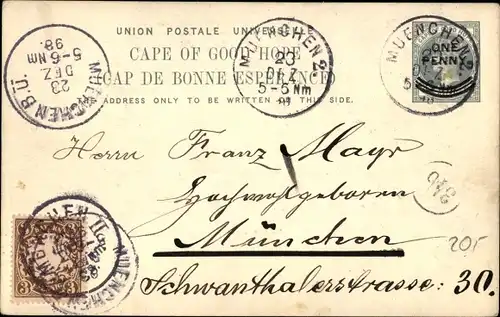 UNION POSTALE UNIVERSELLE
CAPE OF GOOD HOPE
CAP DE BONNE ESPÉRANCE
THE ADDRESS ONLY TO BE WRITTEN ON THIS SIDE.
MUENCHEN B.
23
DEZ
5-6 Nm
98.
MUENCHEN 2
23
DEZ
5-6 Nm
MUENCHEN 2
ONE
PENNY.
Herrn Franz Mayr
Hochwohlgeboren
München
Schwanthalerstrasse: 30.
20,-
MUENCHEN
3